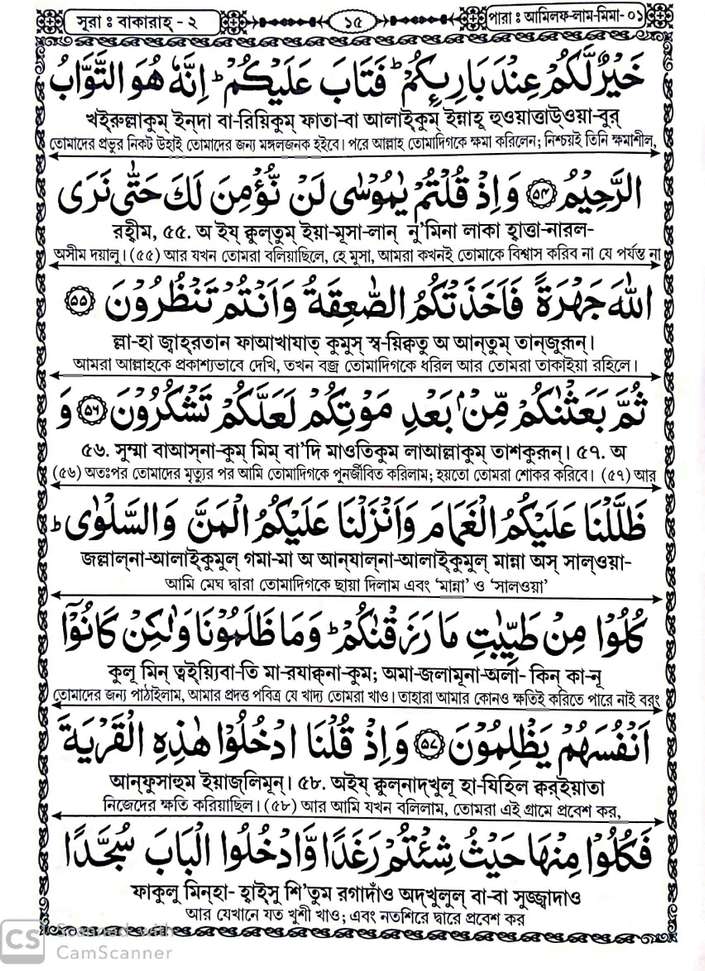 সূরা : বাকারাহ্ - ২
১৫
পারা : আলিফ-লাম-মিম-০১
خَيْرٌ لَّكُمْ عِنْدَ بَارِئِكُمْ ؕ فَتَابَ عَلَيْكُمْ ؕ اِنَّهٗ هُوَ التَّوَّابُ
খইরুল্লাকুম্ ইন্‌দা বা-রিয়িকুম্ ফাতা-বা আলাইকুম্ ইন্নাহূ হুওয়াত্তাউ্ওয়া-বুর্
তোমাদের প্রভুর নিকট উহাই তোমাদের জন্য মঙ্গলজনক হইবে। পরে আল্লাহ তোমাদিগকে ক্ষমা করিলেন; নিশ্চয়ই তিনি ক্ষমাশীল,
الرَّحِيْمُ ۝۵۴ وَ اِذْ قُلْتُمْ يٰمُوْسٰى لَنْ نُّؤْمِنَ لَكَ حَتّٰى نَرَى
রহীম, ৫৫. অ ইয্ ক্বুল্‌তুম্ ইয়া-মূসা-লান্ নু’মিনা লাকা হাত্তা-নারল-
অসীম দয়ালু। (৫৫) আর যখন তোমরা বলিয়াছিলে, হে মূসা, আমরা কখনই তোমাকে বিশ্বাস করিব না যে পর্যন্ত না
اللهَ جَهْرَةً فَاَخَذَتْكُمُ الصّٰعِقَةُ وَ اَنْتُمْ تَنْظُرُوْنَ ۝۵۵
ল্লা-হা জ্বাহ্‌রতান ফাআখাযাত্ কুমুস্ স্ব-য়িক্বতু অ আন্‌তুম্ তান্‌জুরূন্।
আমরা আল্লাহকে প্রকাশ্যভাবে দেখি, তখন বজ্র তোমাদিগকে ধরিল আর তোমরা তাকাইয়া রহিলে।
ثُمَّ بَعَثْنٰكُمْ مِّنْۢ بَعْدِ مَوْتِكُمْ لَعَلَّكُمْ تَشْكُرُوْنَ ۝۵۶ وَ
৫৬. সুম্মা বাআস্‌না-কুম্ মিম্ বা’দি মাওতিকুম্ লাআল্লাকুম্ তাশকুরূন্। ৫৭. অ
(৫৬) অতঃপর তোমাদের মৃত্যুর পর আমি তোমাদিগকে পুনর্জীবিত করিলাম; হয়তো তোমরা শোকর করিবে। (৫৭) আর
ظَلَّلْنَا عَلَيْكُمُ الْغَمَامَ وَاَنْزَلْنَا عَلَيْكُمُ الْمَنَّ وَالسَّلْوٰى ؕ
জল্লাল্‌না-আলাইকুমুল্ গমা-মা অ আন্‌যাল্‌না-আলাইকুমুল্ মান্না অস্ সাল্ওয়া-
আমি মেঘ দ্বারা তোমাদিগকে ছায়া দিলাম এবং ‘মান্না’ ও ‘সালওয়া’
كُلُوْا مِنْ طَيِّبٰتِ مَا رَزَقْنٰكُمْ ؕ وَمَا ظَلَمُوْنَا وَلٰكِنْ كَانُوْٓا
কুলূ মিন্ ত্বইয়্যিবা-তি মা-রযাক্বনা-কুম; অমা-জলামূনা-অলা- কিন্ কা-নূ
তোমাদের জন্য পাঠাইলাম, আমার প্রদত্ত পবিত্র যে খাদ্য তোমরা খাও। তাহারা আমার কোনও ক্ষতিই করিতে পারে নাই বরং
اَنْفُسَهُمْ يَظْلِمُوْنَ ۝۵۷ وَ اِذْ قُلْنَا ادْخُلُوْا هٰذِهِ الْقَرْيَةَ
আন্‌ফুসাহুম ইয়াজ্‌লিমূন্। ৫৮. অইয্ ক্বুল্‌নাদ্‌খুলূ হা-যিহিল ক্বর্‌ইয়াতা
নিজেদের ক্ষতি করিয়াছিল। (৫৮) আর আমি যখন বলিলাম, তোমরা এই গ্রামে প্রবেশ কর,
فَكُلُوْا مِنْهَا حَيْثُ شِئْتُمْ رَغَدًا وَّادْخُلُوا الْبَابَ سُجَّدًا
ফাকুলূ মিন্‌হা- হাইসু শি’তুম রগাদাঁও অদ্‌খুলুল্ বা-বা সুজ্জাদাও
আর যেখানে যত খুশী খাও; এবং নতশিরে দ্বারে প্রবেশ কর
CS
Scanned with
CamScanner